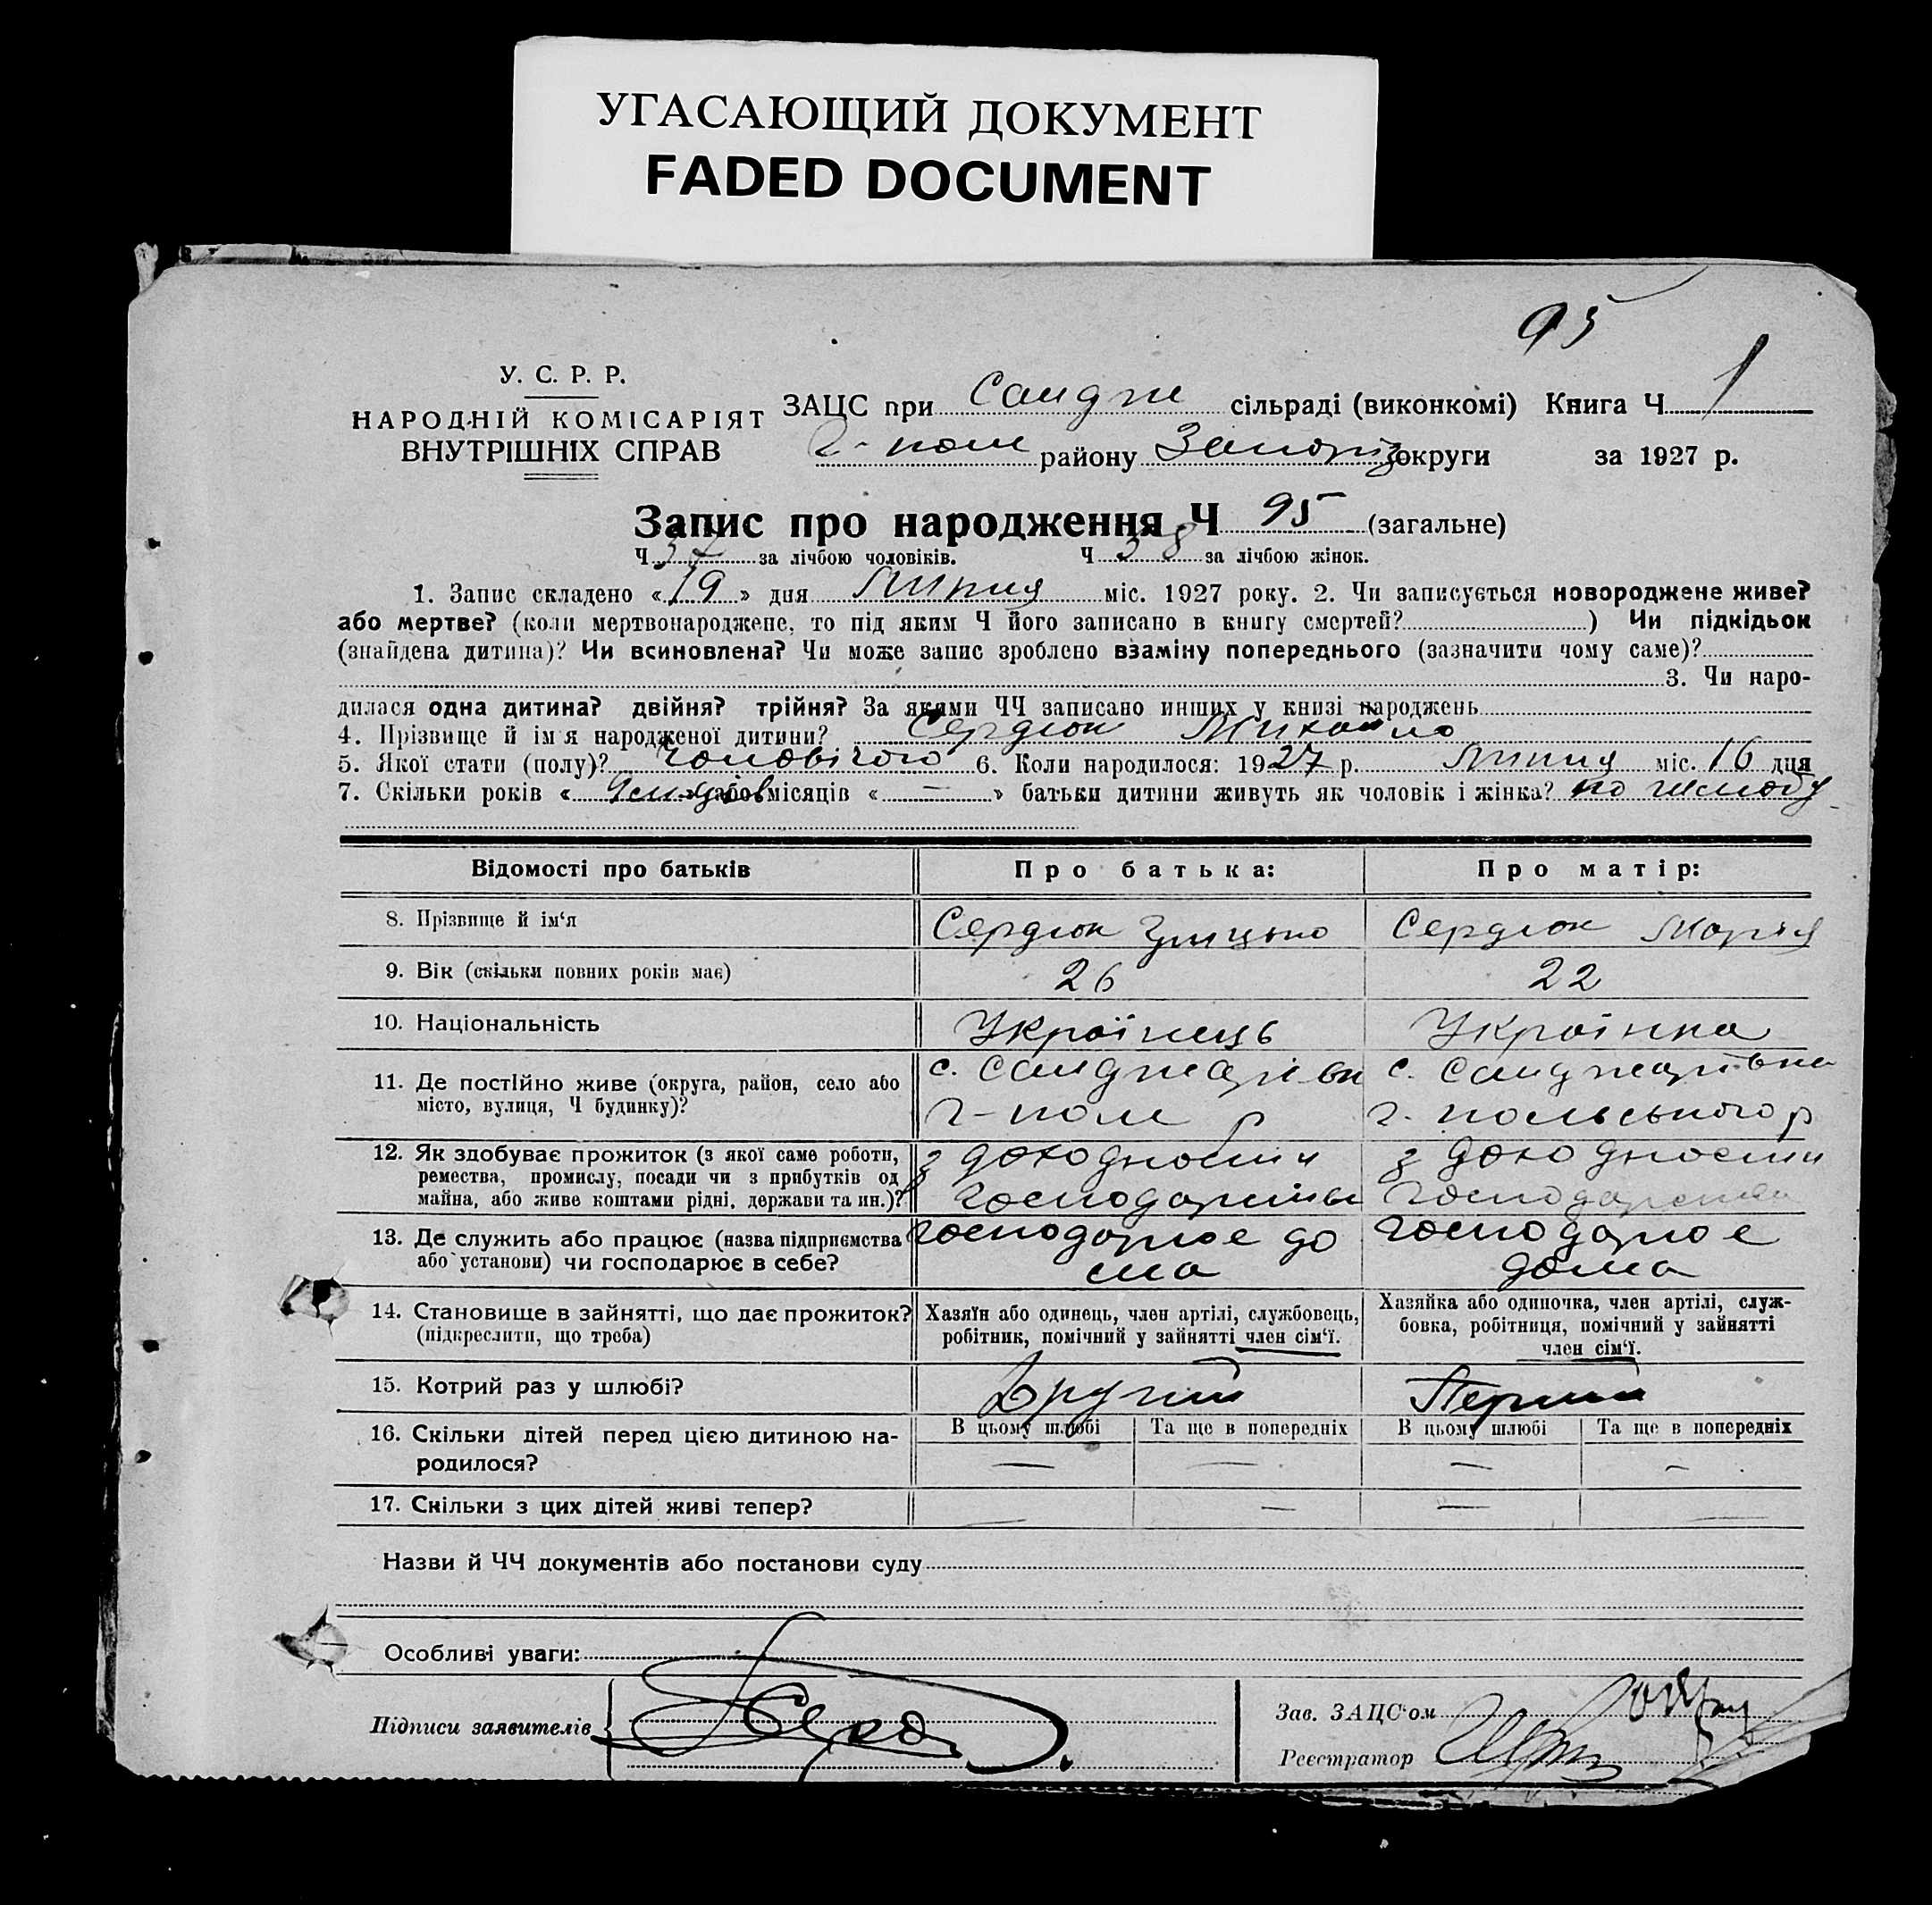 УГАСАЮЩИЙ ДОКУМЕНТ
FADED DOCUMENT
95
У. С. Р. Р.
НАРОДНІЙ КОМІСАРІЯТ
ВНУТРІШНІХ СПРАВ
ЗАЦС при Сандж сільраді (виконкомі) Книга Ч 1
г-пол району Запоріз округи за 1927 р.
Запис про народження Ч 95 (загальне)
Ч 57 за лічбою чоловіків. Ч 38 за лічбою жінок.
1. Запис складено « 19 » дня Липня міс. 1927 року. 2. Чи записується новороджене живе?
або мертве? (коли мертвонароджене, то під яким Ч його записано в книгу смертей? ) Чи підкідьок
(знайдена дитина)? Чи всиновлена? Чи може запис зроблено взаміну попереднього (зазначити чому саме)?
3. Чи наро-
дилася одна дитина? двійня? трійня? За якими ЧЧ записано инших у книзі народжень
4. Прізвище й ім'я народженої дитини? Сердюк Михайло
5. Якої стати (полу)? Чоловічого 6. Коли народилося: 1927 р. Липня міс. 16 дня
7. Скільки років « » або місяців « — » батьки дитини живуть як чоловік і жінка? по шлюбу
Відомості про батьків Про батька: Про матір:
8. Прізвище й ім'я Сердюк Грицько Сердюк Марія
9. Вік (скільки повних років має) 26 22
10. Національність Українець Українка
11. Де постійно живе (округа, район, село або місто, вулиця, Ч будинку)?
с. Санджарівка с. Санджарівка
г-пол р г. польського р
12. Як здобуває прожиток (з якої саме роботи,
ремества, промислу, посади чи з прибутків од
майна, або живе коштами рідні, держави та ин.)?
з доходности з доходности
господарства господарства
13. Де служить або працює (назва підприємства
або установи) чи господарює в себе?
господарює до господарює
ма дома
14. Становище в зайнятті, що дає прожиток?
(підкреслити, що треба)
Хазяїн або одинець, член артілі, службовець,
робітник, помічний у зайнятті член сім'ї.
Хазяйка або одиночка, член артілі, служ-
бовка, робітниця, помічний у зайнятті
член сім'ї.
15. Котрий раз у шлюбі? Другий Перший
16. Скільки дітей перед цією дитиною на-
родилося?
В цьому шлюбі Та ще в попередніх В цьому шлюбі Та ще в попередніх
— — — —
17. Скільки з цих дітей живі тепер? — — — —
Назви й ЧЧ документів або постанови суду
Особливі уваги:
Підписи заявителів Серд
Зав. ЗАЦС'ом
Реєстратор